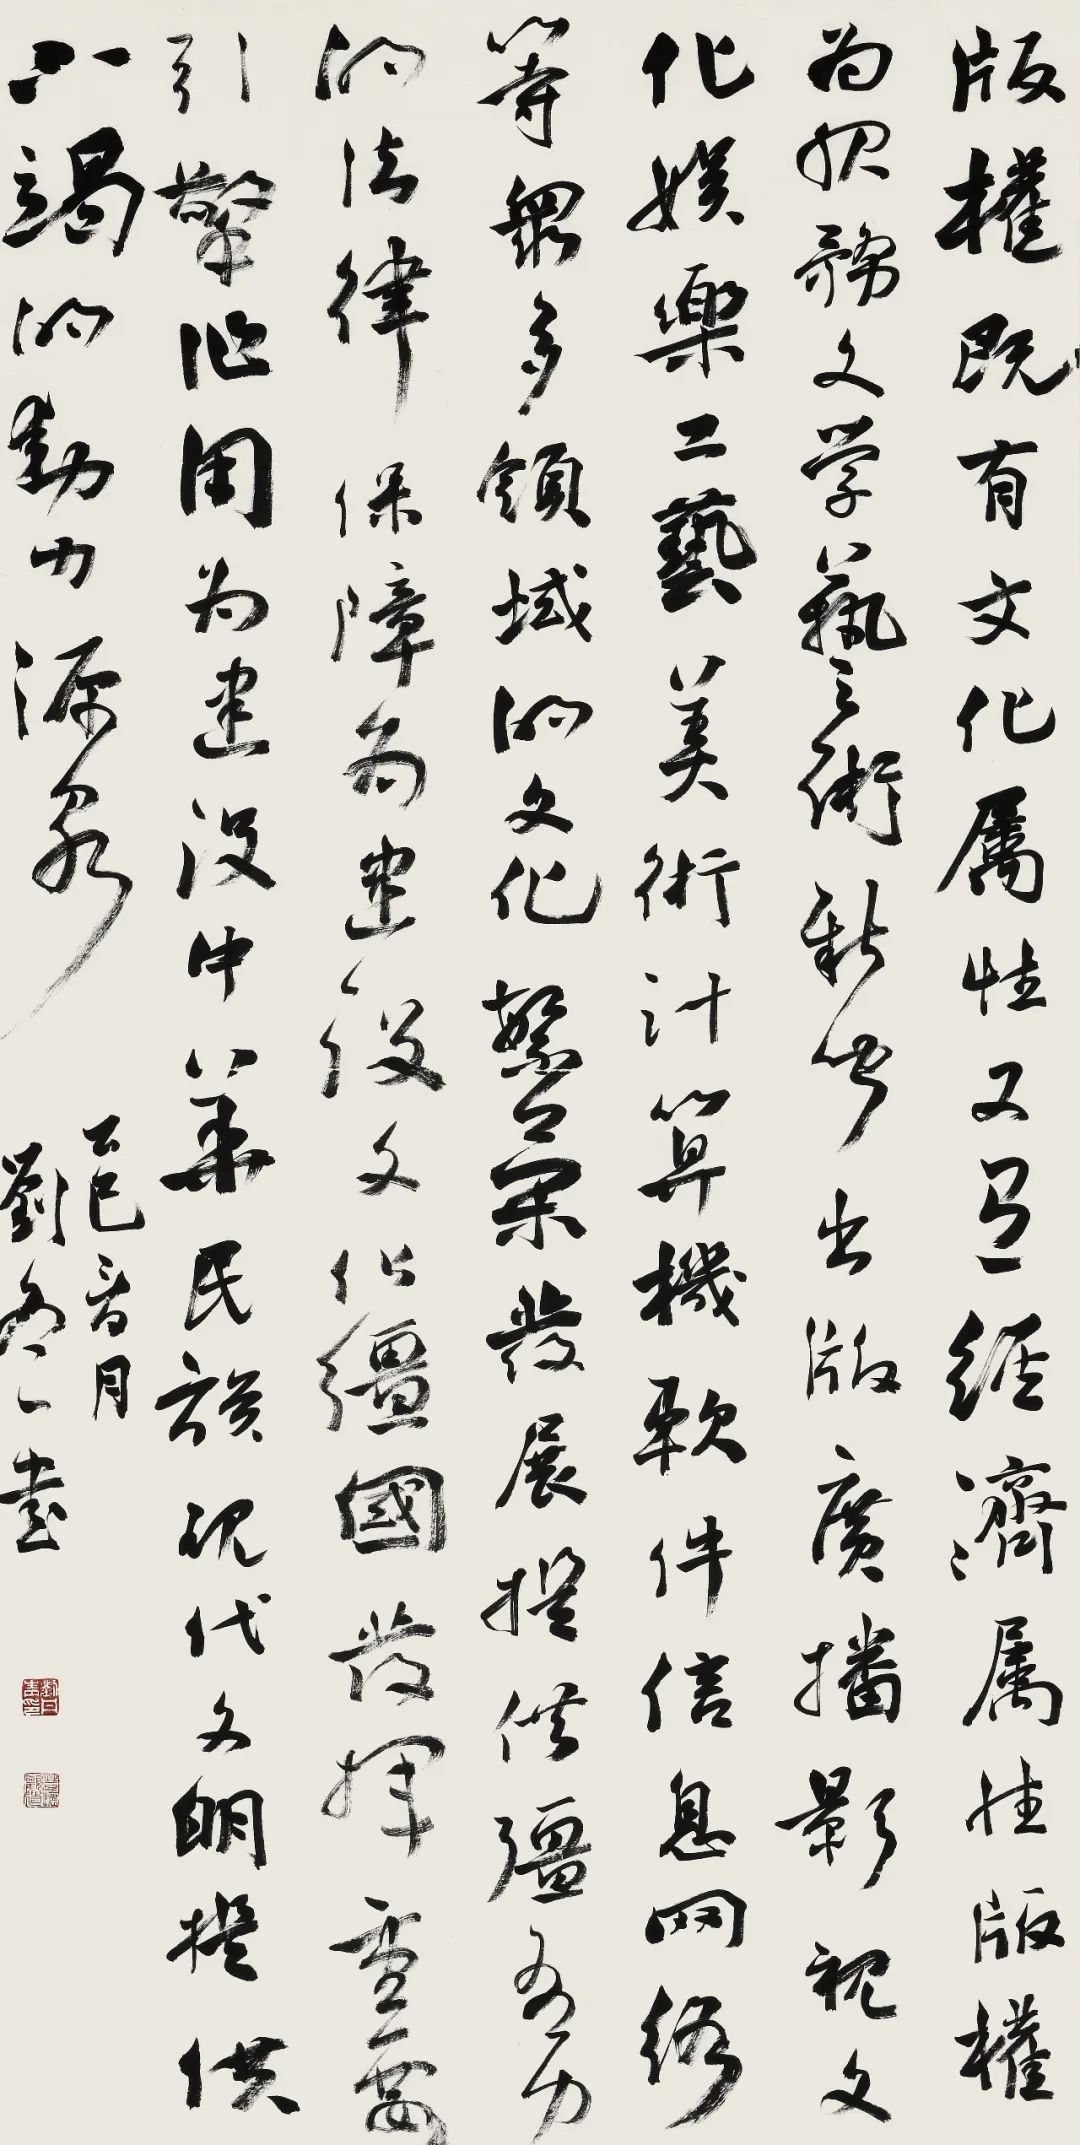 版權既有文化属性又具經濟属性版權
为服務文学藝術新聞出版廣播影視文
化娛樂工藝美術計算機軟件信息网絡
等眾多領域的文化繁榮發展提供彊有力
的法律保障为建設文化彊國發揮重要
引擎作用为建设中華民族现代文明提供
不竭的動力源泉
乙巳春月
劉 書